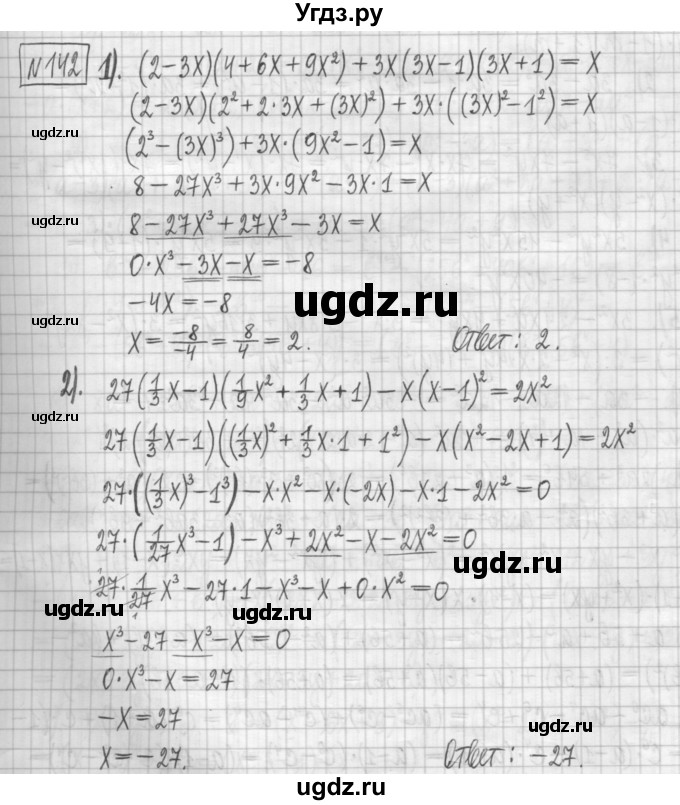 Угдз.ру
№142 1). (2-3x)(4+6x+9x²)+3x(3x-1)(3x+1)=x
(2-3x)(2²+2·3x+(3x)²)+3x·((3x)²-1²)=x
ugdz.ru
(2³-(3x)³)+3x·(9x²-1)=x
8-27x³+3x·9x²-3x·1=x
ugdz.ru
8-27x³+27x³-3x=x
0·x³-3x-x=-8
ugdz.ru
-4x=-8
ugdz.ru
x=-8/-4=8/4=2. Ответ: 2.
2). 27(1/3x-1)(1/9x²+1/3x+1)-x(x-1)²=2x²
27(1/3x-1)((1/3x)²+1/3x·1+1²)-x(x²-2x+1)=2x²
ugdz.ru
ugdz.ru
27·((1/3x)³-1³)-x·x²-x·(-2x)-x·1-2x²=0
27·(1/27x³-1)-x³+2x²-x-2x²=0
ugdz.ru
27·1/27x³-27·1-x³-x+0·x²=0
ugdz.ru
ugdz.ru
x³-27-x³-x=0
0·x³-x=27
-x=27
ugdz.ru
x=-27. Ответ: -27.
ugdz.ru